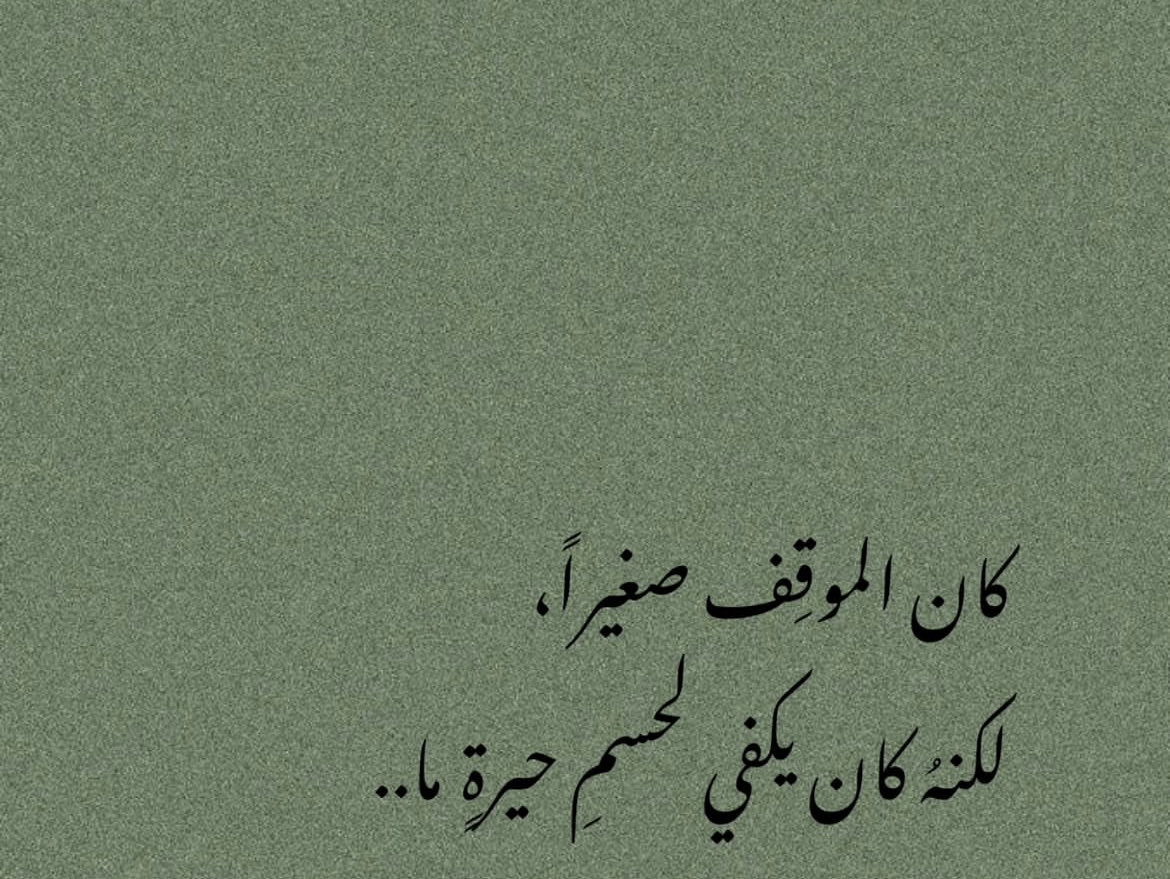 كان الموقِف صغيراً،
لكنهُ كان يكفي لحسمِ حيرةٍ ما..